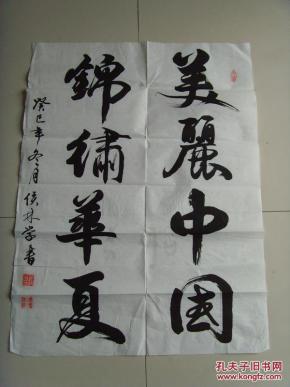 美麗中国
錦繡華夏
癸巳年冬月侯林学書
孔夫子旧书网